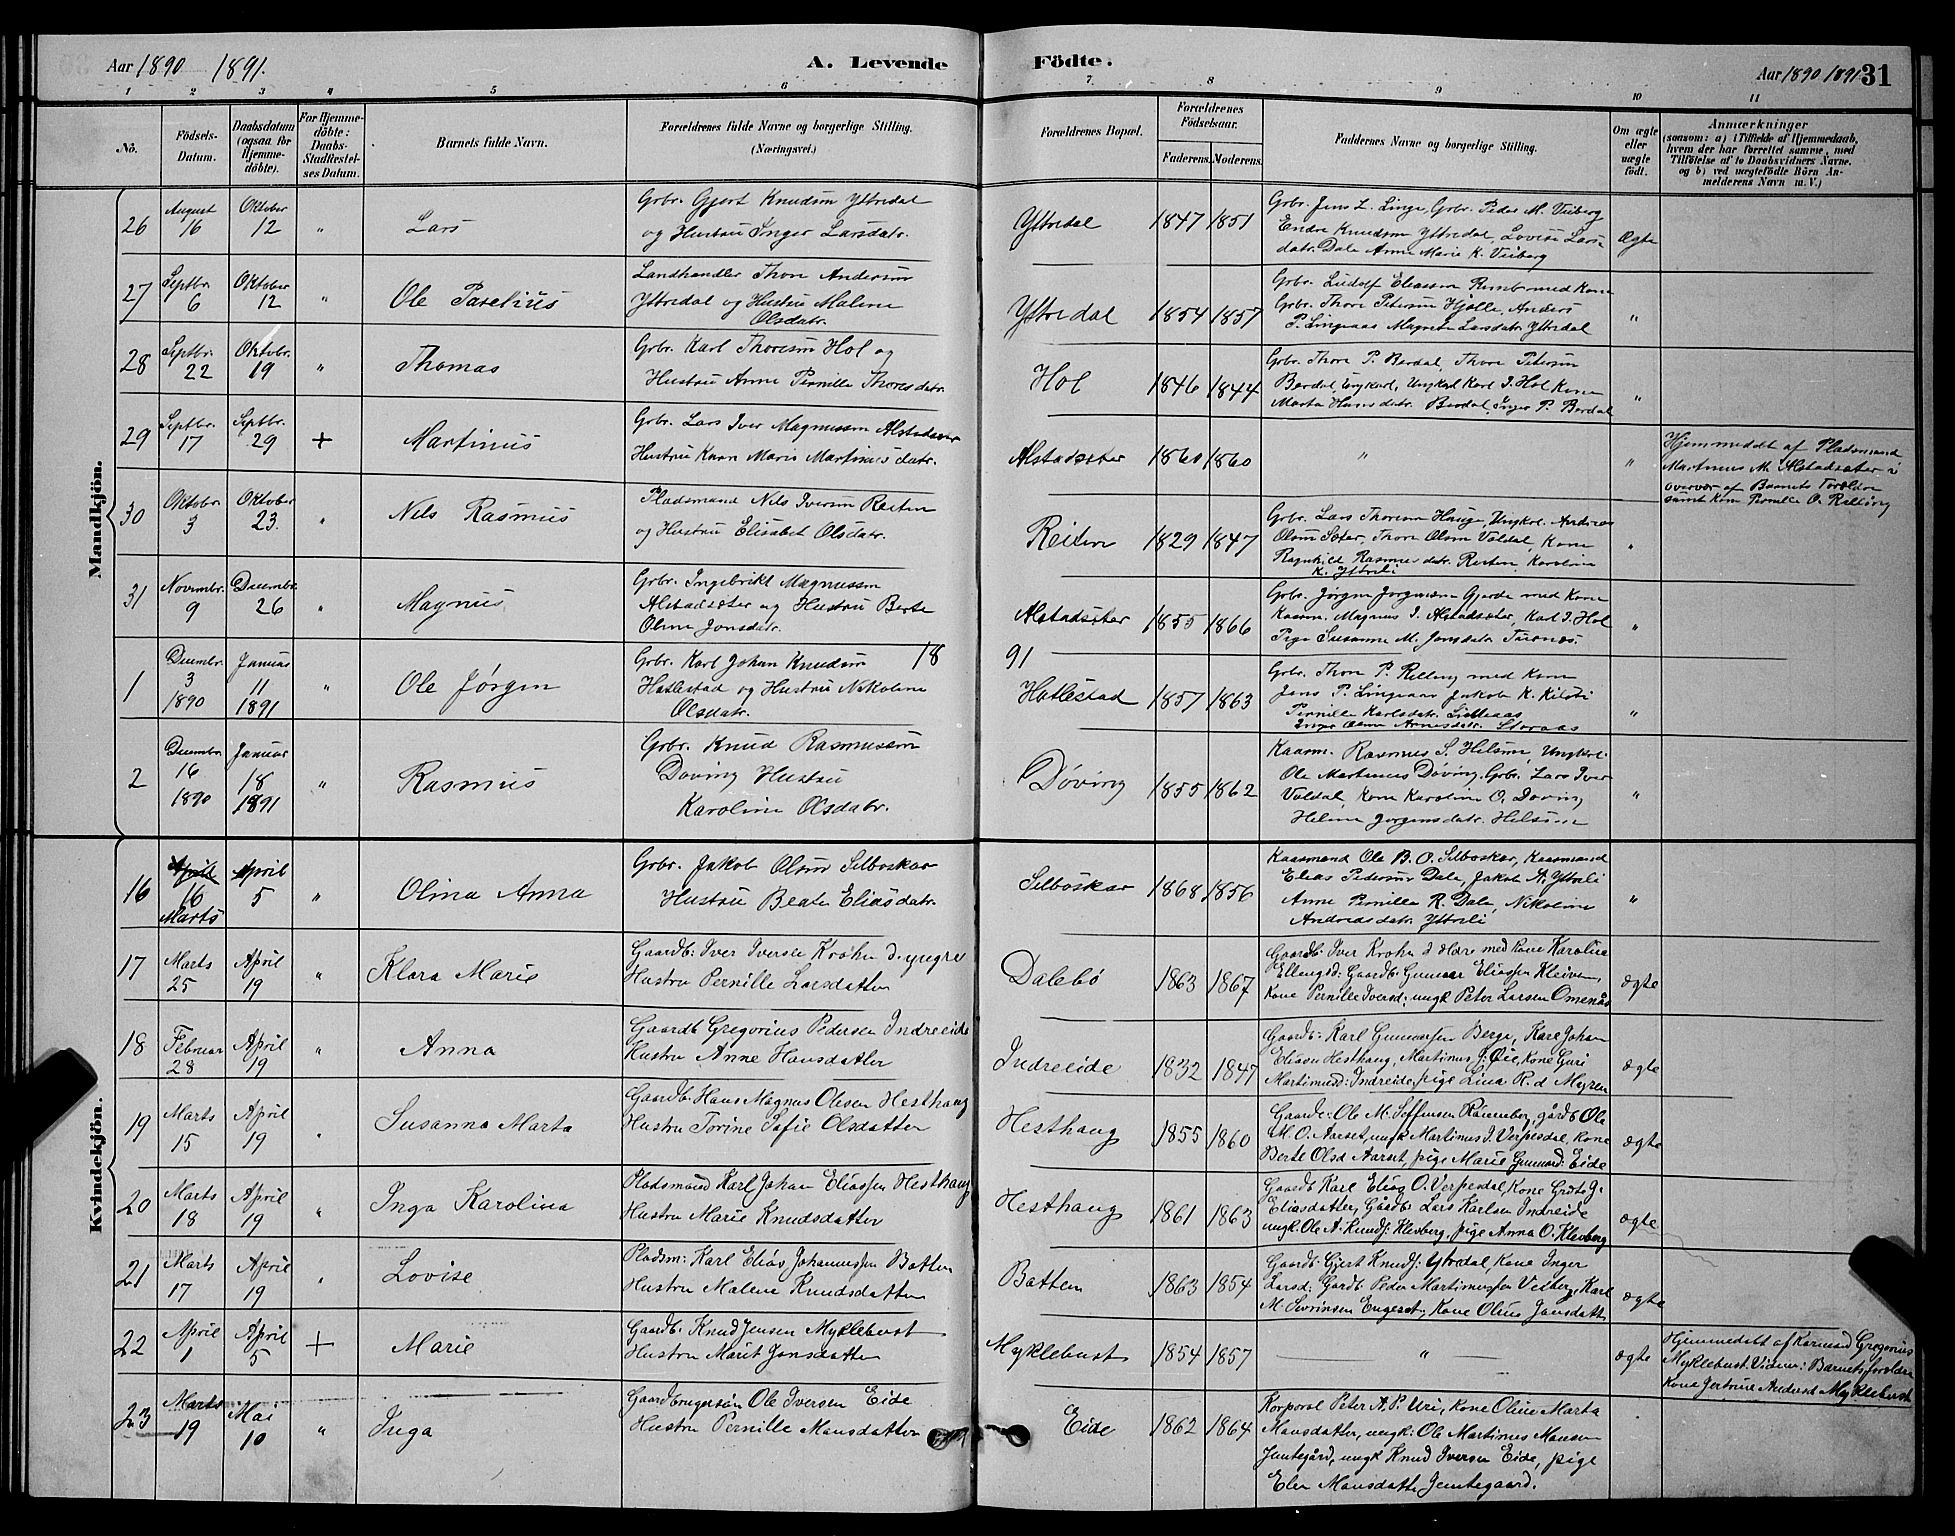 Aar 1890 1891.
A. Levende Födte.
Aar 1890 1891 31
1 2 3 4 5 6 7. 8 9 10 11
No.
Födsels-
Datum.
Daabsdatum
(ogsaa for
Hjemme-
döbte).
For Hjemme-
döbte:
Daabs-
Stadfæstel-
ses Datum.
Barnets fulde Navn.
Forældrenes fulde Navne og borgerlige Stilling.
(Næringsvei.)
Forældrenes Bopæl.
Forældrenes
Födselsaar.
Faderens. Moderens.
Faddernes Navne og borgerlige Stilling.
Om ægte
eller
uægte
født.
Anmærkninger
(saasom: a) i Tilfælde af Hjemmedaab,
hvem der har forrettet samme, med
Tilföielse af to Daabsvidners Navne.
og b) ved uægtefödte Börn An-
melderens Navn m. V.)
Mandkjön.
26 August 16 Oktober 12 " Lars
Grbr. Gjert Knudsen Yttredal
og Hustru Inger Larsdatr.
Yttredal 1847 1851
Grbr. Jens L. Linge, Grbr. Peder M. Veiberg
Endre Knudsen Yttredal, Lovise Lars
datr. Dale Anne Marie K. Veiberg
Ægte
27 Septbr. 6 Oktober 12 " Ole Parelius
Landhandler Thore Andersen
Yttredal og Hustru Malene
Olsdatr.
Yttredal 1854 1857
Grbr. Ludolf Eliassen med Kone
Grbr. Thore Petersen Hjelle, Anders
P. Lingaas Magrete Larsdatr. Yttredal
"
28 Septbr. 22 Oktobr. 19 " Thomas
Grbr. Karl Thoresen Hol og
Hustru Anne Pernille Thoresdatr.
Hol 1846 1844
Grbr. Thore P. Berdal, Thore Petersen
Berdal Ungkarl, Ungkarl Karl I. Hol Kone
Marta Hansdatr. Berdal, Inger P. Berdal
"
29 Septbr. 17 Septbr. 29 + Martinus
Grbr. Lars Iver Magnussen Alstadsæter
Hustru Karen Marie Martinusdatr.
Alstadsæter 1860 1860 " "
Hjemmedøbt af Pladsmand
Martinus M. Alstadsæter i
overvær af Barnets Forældre
samt Kone Pernille O. Relling
30 Oktober 3 Oktober 23. " Nels Rasmus
Pladsmand Nils Iversen Reiten
og Hustru Elisabet Olsdatr.
Reiten 1829 1847
Grbr. Lars Thoresen Hauge, Ungkrl. Andreas
Olsen Sæter, Thore Olsen Valdal, Kone
Ragnhild Rasmusdatr. Reiten, Karoline
K. Yttreli
"
31 Novembr. 9 Decembr. 26 " Magnus
Grbr. Ingebrikt Magnussen
Alstadsæter og Hustru Berte
Oline Jonsdatr.
Alstadsæter 1855 1866
Grbr. Jørgen Jørgensen Gjerde med Kone
Kaarm. Magnus I. Alstadsæter, Karl I. Hol
Pige Susanne M. Jonsdatr.
"
18 91
1 Decembr. 3 1890 Januar 11 1891 " Ole Jørgen
Grbr. Karl Johan Knudsen
Hatlestad og Hustru Nikoline
Olsdatr.
Hatlestad 1857 1863
Grbr. Thore P. Relling med Kone
Jens P. Lingaas Jakob K. Kilsti
Pernille Karlsdatr. Lillaas
Inger Oline Arnesdatr. Storaas
"
2 Decembr. 16 1890 Januar 18 1891 " Rasmus
Grbr. Knud Rasmussen
Døving Hustru
Karoline Olsdatr.
Døving 1855 1862
Kaarm. Rasmus S. Helsem, Ungkrl.
Ole Martinus Døving, Grbr. Lars Iver
Valdal, Kone Karoline O. Døving
Heline Jørgensdatr. Helsem
"
Kvindekjön.
16 April 16 Marts April 5 " Olina Anna
Grbr. Jakob Olsen Selboskar
Hustru Beate Eliasdatr.
Selboskar 1868 1856
Kaasmand Ole B. O. Selboskar, Kaasmand
Elias Pedersen Dale, Jakob A. Yttreli
Anne Pernille R. Dale, Nikoline
Andreasdatr. Yttreli
"
17 Marts 25 April 19 " Klara Marie
Gaardb: Iver Iversen Krohn d. yngre
Hustru Pernille Larsdatter
Dalebø 1863 1867
Gaardb: Iver Krohn d ældre med kone Karolina
Ellengsd: Gaardb: Gunnar Eliassen Kleiven,
Kone Pernille Iversd; ungk Peter Larsen Omenås
ægte
18 Februar 28 April 19 " Anna
Gaardb Gregorius Pedersen Indreeide
Hustru Anne Hansdatter
Indreeide 1832 1847
Gaardb: Karl Gunnarsen Berge, Karl Johan
Eliasen Hesthaug, Martinus J: Øie, Kone Guri
Martinusd: Indreide, pige Lina R. d Myren
ægte
19 Marts 15 April 19 " Susanna Marta
Gaardb: Hans Magnus Olesen Hesthaug
Hustru Torine Sofie Olsdatter
Hesthaug 1855 1860
Gaardb: Ole M. Soffensen Rønneberg, gårdb Ole
M. O. Aarset, ungk Martinus I. Verpesdal, kone
Berte Olsd Aarset, pige Marie Gunnard: Eide
ægte
20 Marts 18 April 19 " Inga Karolina
Pladsmand Karl Johan Eliassen Hesthaug
Hustru Marie Knudsdatter
Hesthaug 1861 1863
Gaardb Karl Elias O. Verpesdal, Kone Grete J.
Eliasdatter, Gaardb: Lars Karlsen Indreide
ungk. Ole A. Knudj: Klevberg, pige Anna O. Klevberg
ægte
21 Marts 17 April 19 " Lovise
Pladsm: Karl Elias Johannessen Batten
Hustru Malene Knudsdatter
Batten 1863 1854
Gaardb: Gjert Knudj: Ytredal, Kone Inger
Larsd: Gardb Peder Martinussen Veiberg, Karl
M. Sevrinsen Engeset, Kone Oline Jansdatter
ægte
22 April 1 April 5 + Marie
Gaardb: Knud Jensen Myklebust
Hustru Marit Jonsdatter
Myklebust 1854 1857 " ægte
Hjemmedøbt af Kaarmand Gregorius
Myklebust. Vidner: Barnets forældre
Kone Jertrine Andersd Myklebust
23 Marts 19 Mai 10 " Inga
Gaardbrugersøn Ole Iversen Eide
Hustru Pernille Mansdatter
Eide 1862 1864
Korporal Peter A. P. Uri, Kone Oline Marta
Mansdatter, ungk: Ole Martinus Mansen
Jemtegård, ungk Knud Iversen Eide, pige
Elen Mansdatter Jemtegaard.